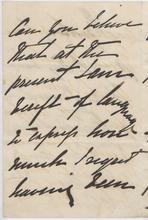 Can you believe
that at the
present I am
bereft of language
to express how
much I regret
having been